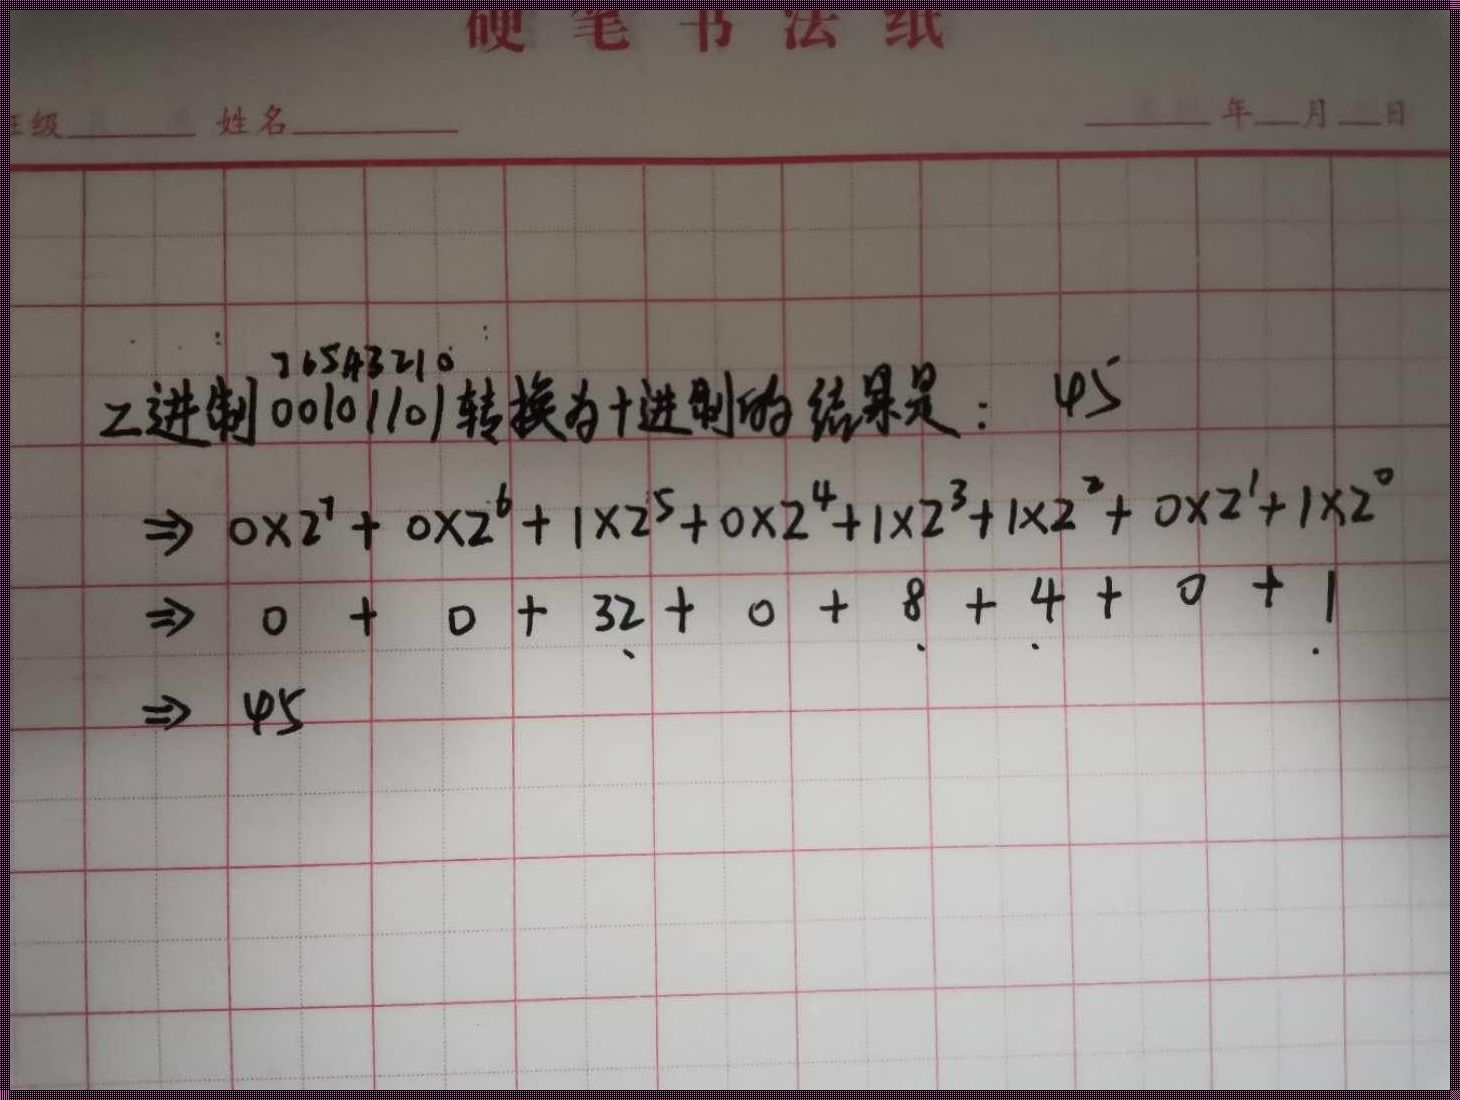 硬笔书法纸
班级 姓名 年 月 日
76543210
二进制00101101转换为十进制的结果是: 45
⇒ 0×2⁷ + 0×2⁶ + 1×2⁵ + 0×2⁴ + 1×2³ + 1×2² + 0×2¹ + 1×2⁰
⇒ 0 + 0 + 32 + 0 + 8 + 4 + 0 + 1
⇒ 45